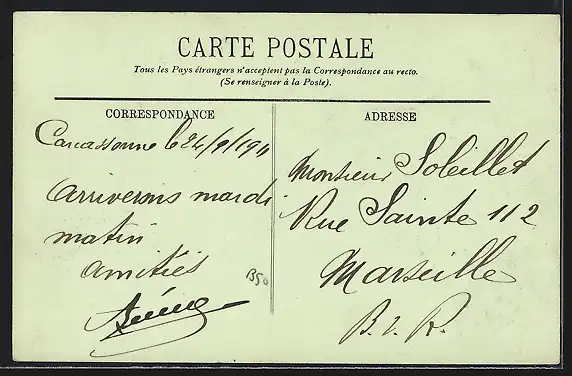 CARTE POSTALE
Tous les Pays étrangers n'acceptent pas la Correspondance au recto.
(Se renseigner à la Poste).
CORRESPONDANCE
Carcassonne le 24/9/1911
arriverons mardi
matin
amitiés
B50
ADRESSE
Monsieur Soleillet
Rue Sainte 112
Marseille
B. d. R.